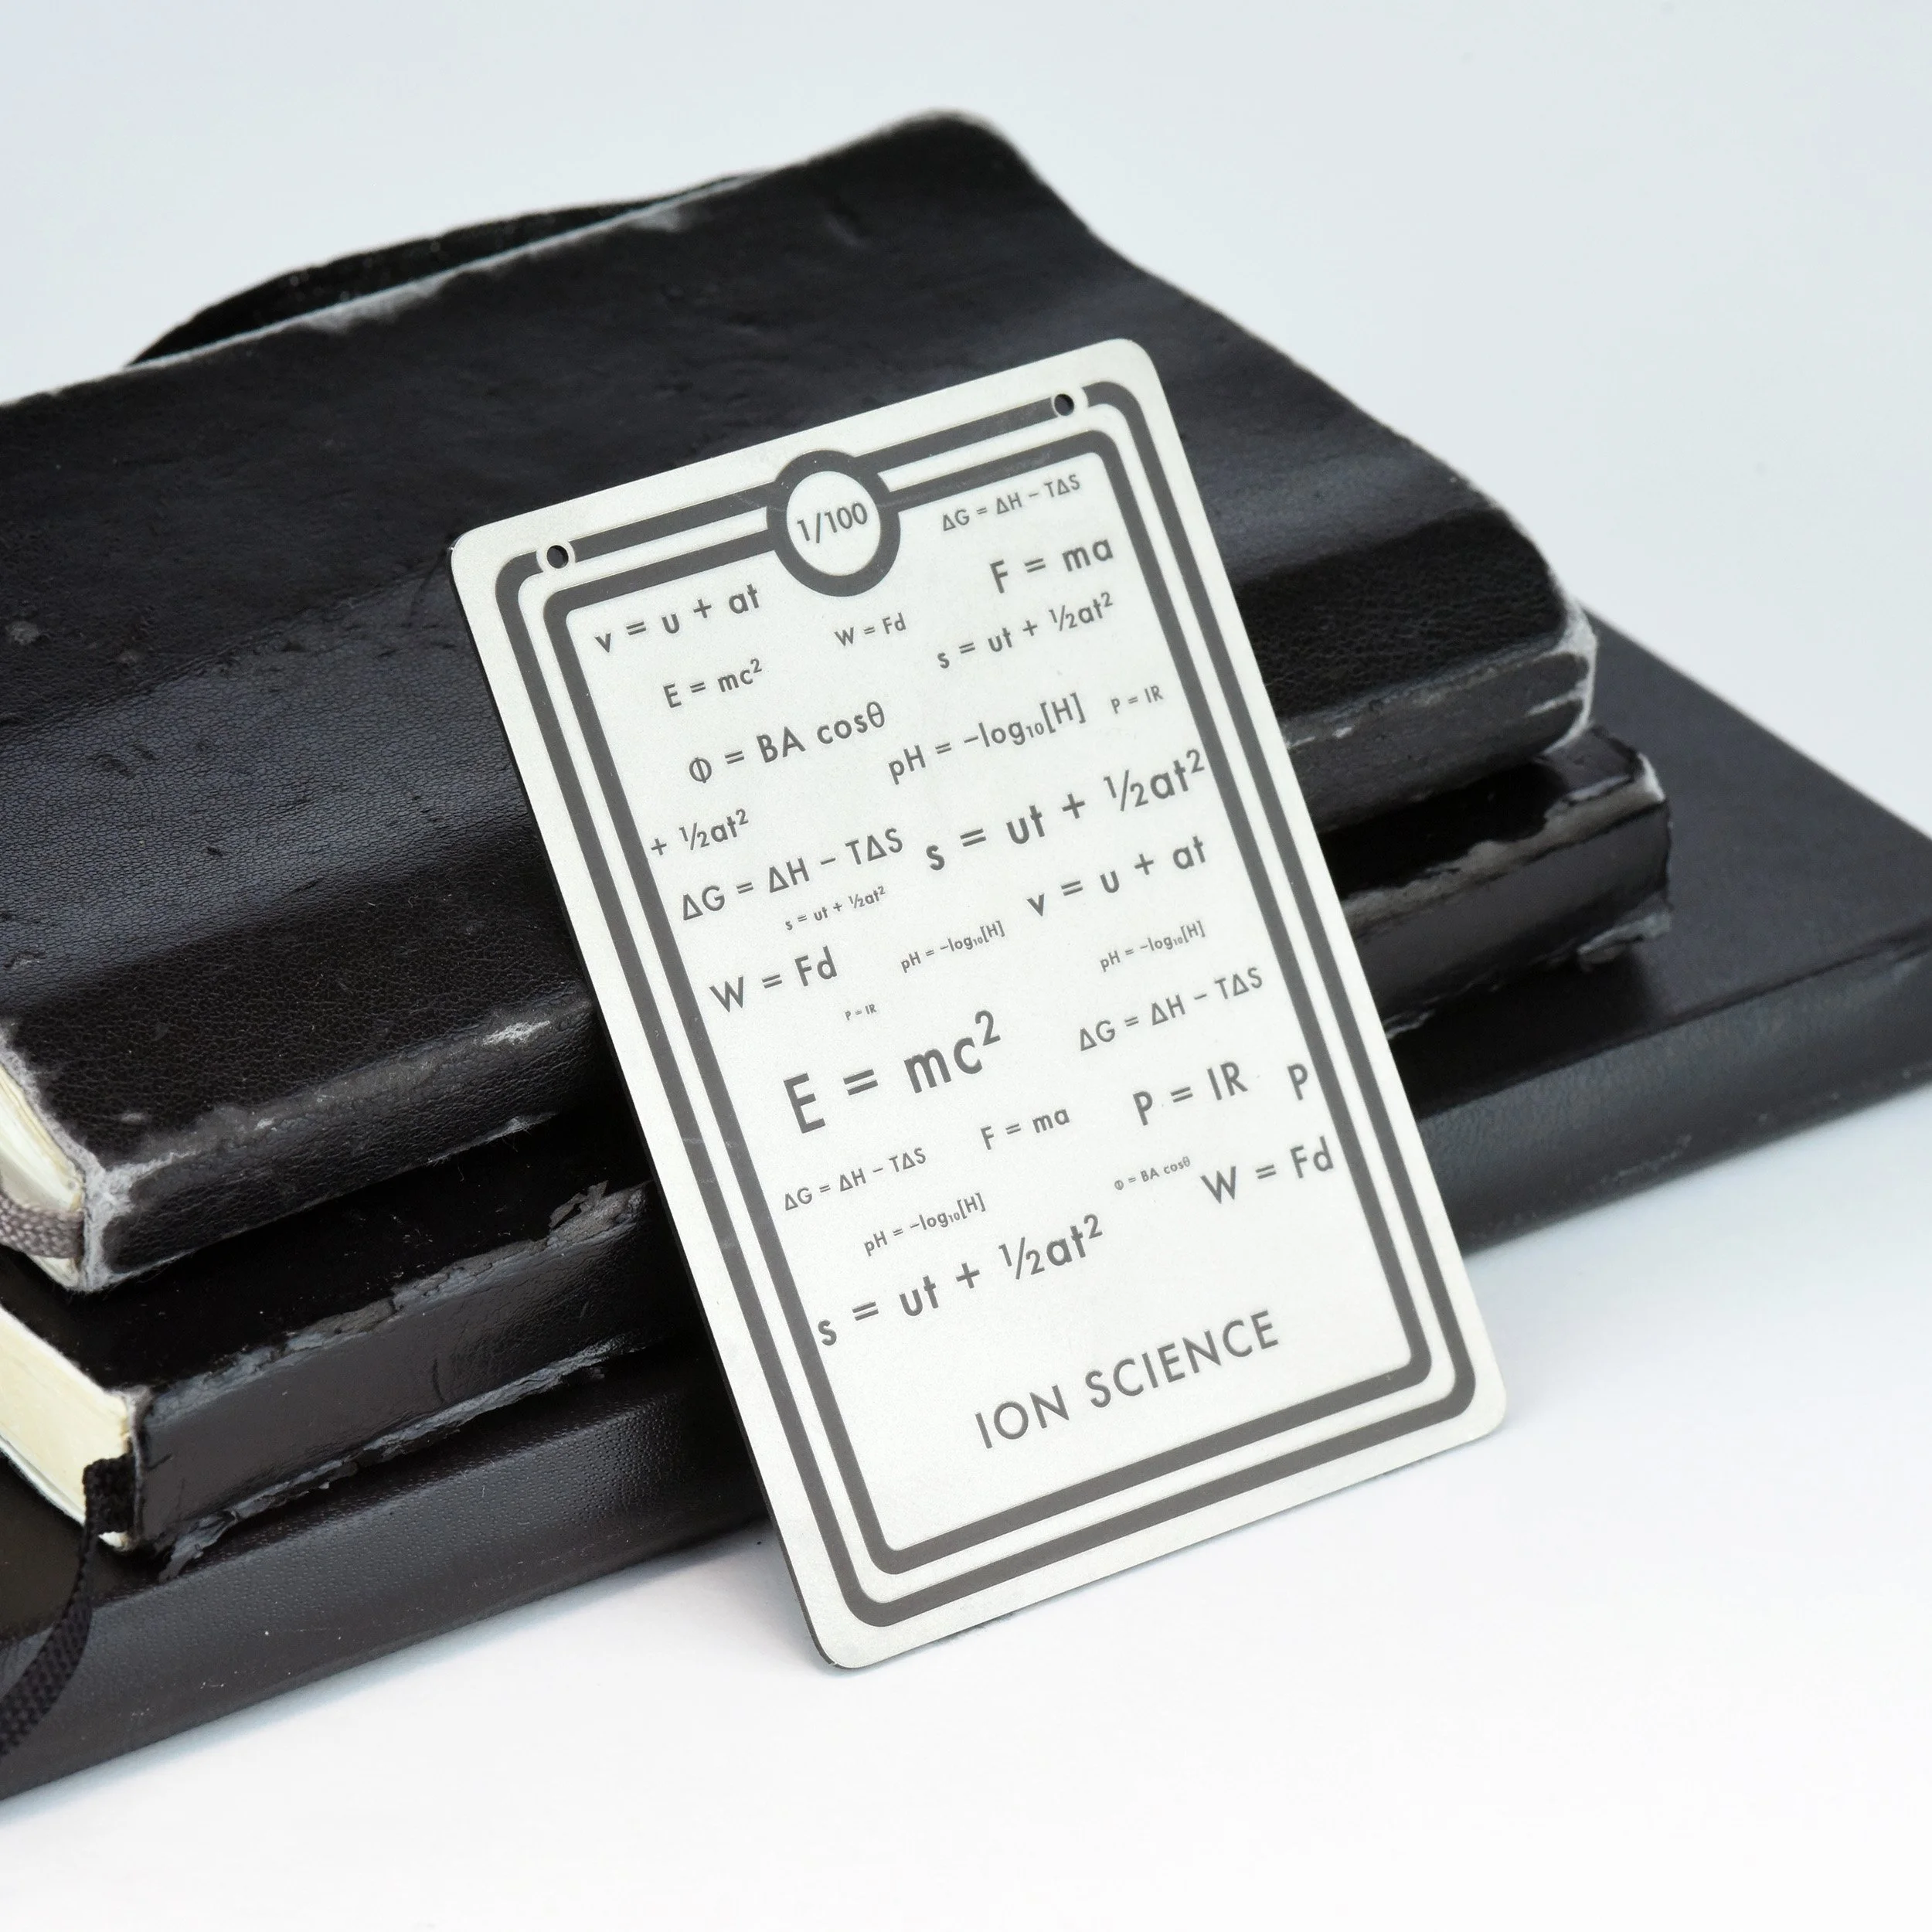 1/100
ΔG = ΔH − TΔS
F = ma
v = u + at
W = Fd
s = ut + ½at²
E = mc²
Φ = BA cosθ
pH = −log₁₀[H]
P = IR
+ ½at²
ΔG = ΔH − TΔS
s = ut + ½at²
s = ut + ½at²
v = u + at
W = Fd
pH = −log₁₀[H]
pH = −log₁₀[H]
P = IR
E = mc²
ΔG = ΔH − TΔS
F = ma
P = IR
P
ΔG = ΔH − TΔS
Φ = BA cosθ
W = Fd
pH = −log₁₀[H]
s = ut + ½at²
ION SCIENCE